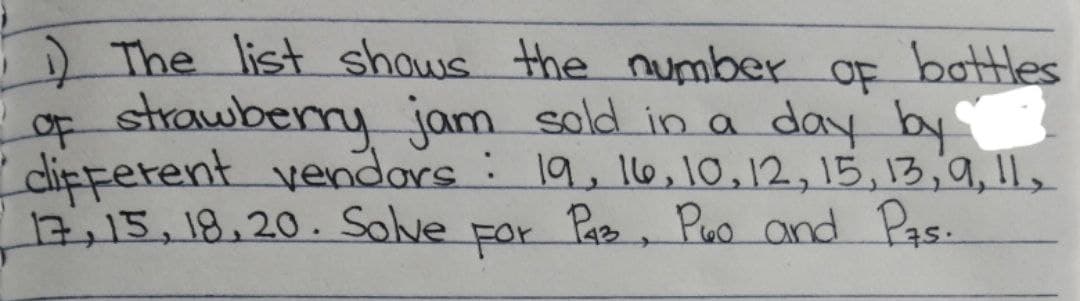 1) The list shows the number of bottles
of strawberry jam sold in a day by
different vendors : 19, 16, 10, 12, 15, 13, 9, 11,
17, 15, 18, 20. Solve for P43, P60 and P75.